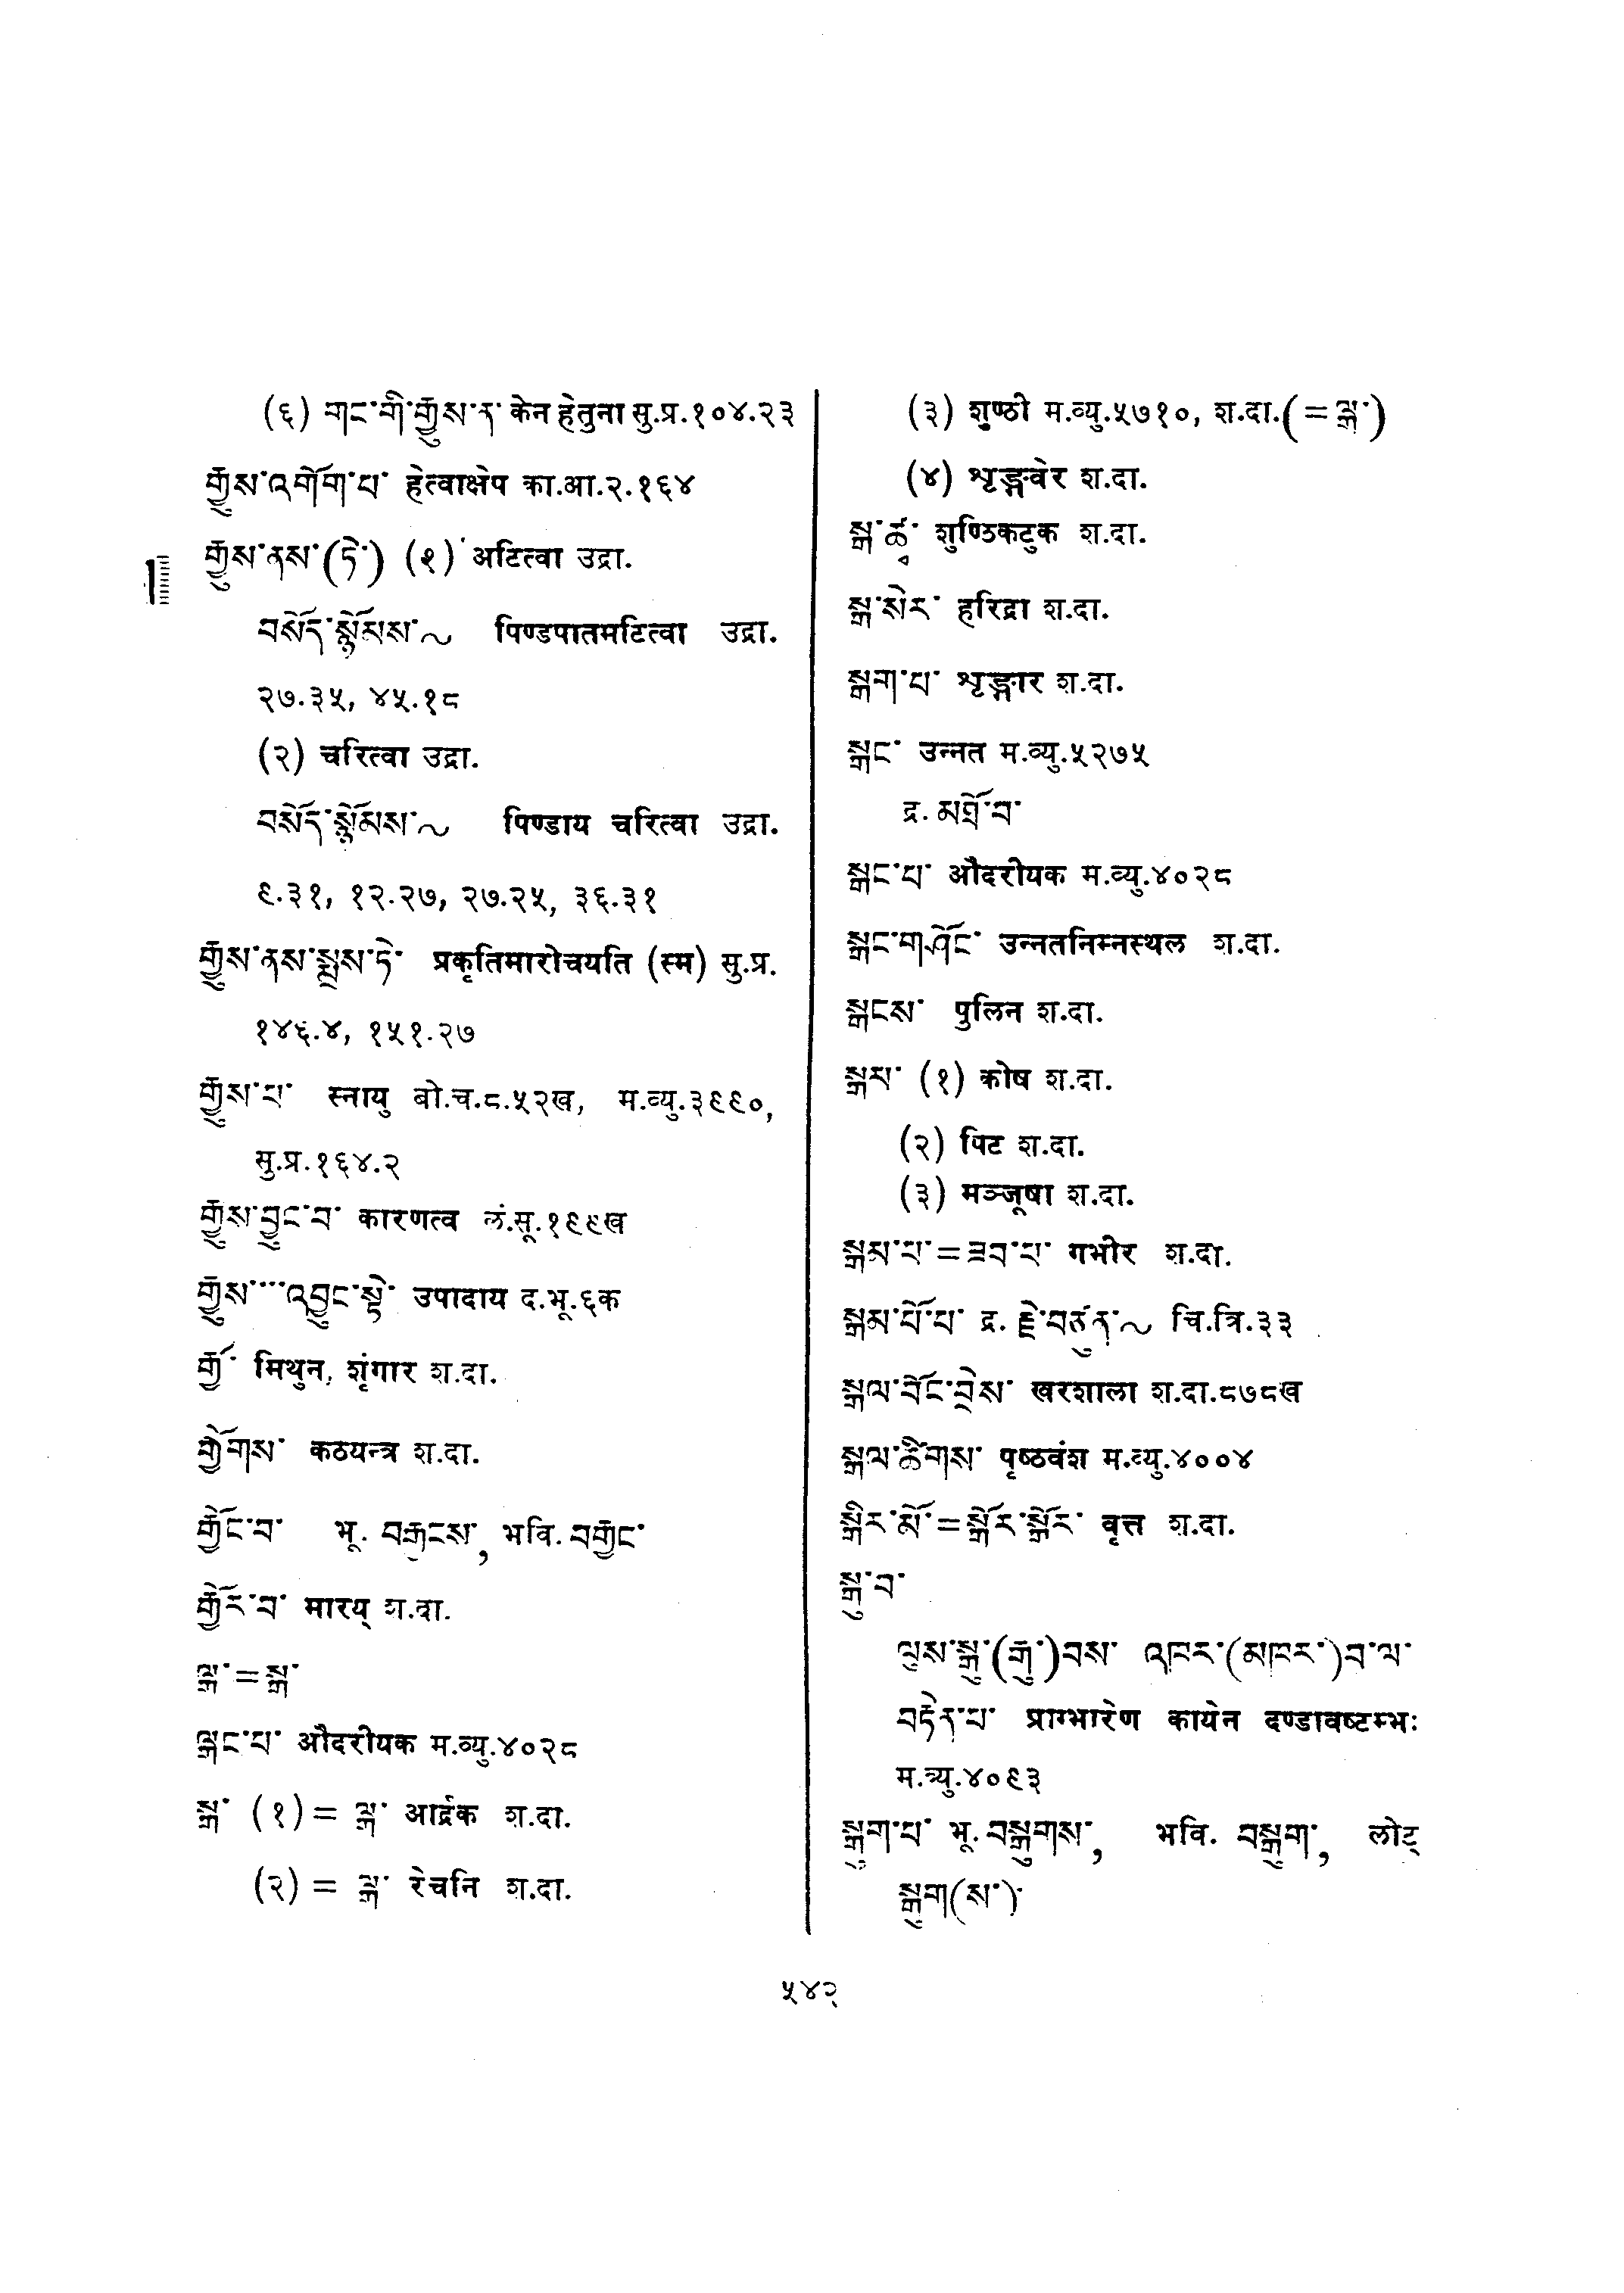 (६) གང་གི་རྒྱུས་ན་ केन हेतुना सु.प्र.१०४.२३
རྒྱུས་འགོག་པ་ हेत्वाक्षेप का.आ.२.१६४
རྒྱུས་ནས་(ཏེ་) (१) अटित्वा उद्रा.
བསོད་སྙོམས་~ पिण्डपातमटित्वा उद्रा.
२७.३५, ४५.१८
(२) चरित्वा उद्रा.
བསོད་སྙོམས་~ पिण्डाय चरित्वा उद्रा.
९.३१, १२.२७, २७.२५, ३६.३१
རྒྱུས་ནས་སྨྲས་ཏེ་ प्रकृतिमारोचयति (स्म) सु.प्र.
१४६.४, १५१.२७
རྒྱུས་པ་ स्नायु बो.च.८.५२ख, म.व्यु.३९९०,
सु.प्र.१६४.२
རྒྱུས་བྱུང་བ་ कारणत्व लं.सू.१९९ख
རྒྱུས་་་་འབྱུང་སྟེ་ उपादाय द.भू.६क
རྒྱོ་ मिथुन, शृंगार श.दा.
སྒྱོགས་ कठयन्त्र श.दा.
རྒྱོང་བ་ भू. བརྒྱངས་, भवि. བརྒྱང་
རྒྱོར་བ་ मारय् श.दा.
ལྒ་=སྒ་
ལྒང་པ་ औदरीयक म.व्यु.४०२८
སྒ་ (१) = ལྒ་ आर्द्रक श.दा.
(२) = ལྒ་ रेचनि श.दा.
(३) शुण्ठी म.व्यु.५७१०, श.दा.(=ལྒ་)
(४) शृङ्गवेर श.दा.
སྒ་ཚྭ་ शुण्ठिकटुक श.दा.
སྒ་སེར་ हरिद्रा श.दा.
སྒག་པ་ शृङ्गार श.दा.
སྒང་ उन्नत म.व्यु.५२७५
द्र. མགྲོ་བ་
སྒང་པ་ औदरीयक म.व्यु.४०२८
སྒང་གཤོང་ उन्नतनिम्नस्थल श.दा.
སྒངས་ पुलिन श.दा.
སྒབ་ (१) कोष श.दा.
(२) पिट श.दा.
(३) मञ्जूषा श.दा.
སྒམ་པ་=ཟབ་པ་ गभीर श.दा.
སྒམ་པོ་པ་ द्र. རྗེ་བཙུན་~ चि.त्रि.३३
སྒལ་བོང་བྲེས་ खरशाला श.दा.८७८ख
སྒལ་ཚིགས་ पृष्ठवंश म.व्यु.४००४
སྒིར་མོ་=སྒོར་སྒོར་ वृत्त श.दा.
སྒུ་བ་
ལུས་སྒུ་(རྒུ་)བས་ འཁར་(མཁར་)བ་ལ་
བརྟེན་པ་ प्राग्भारेण कायेन दण्डावष्टम्भः
म.व्यु.४०९३
སྒུག་པ་ भू. བསྒུགས་, भवि. བསྒུག་, लोट्
སྒུག(ས་)་
५४२